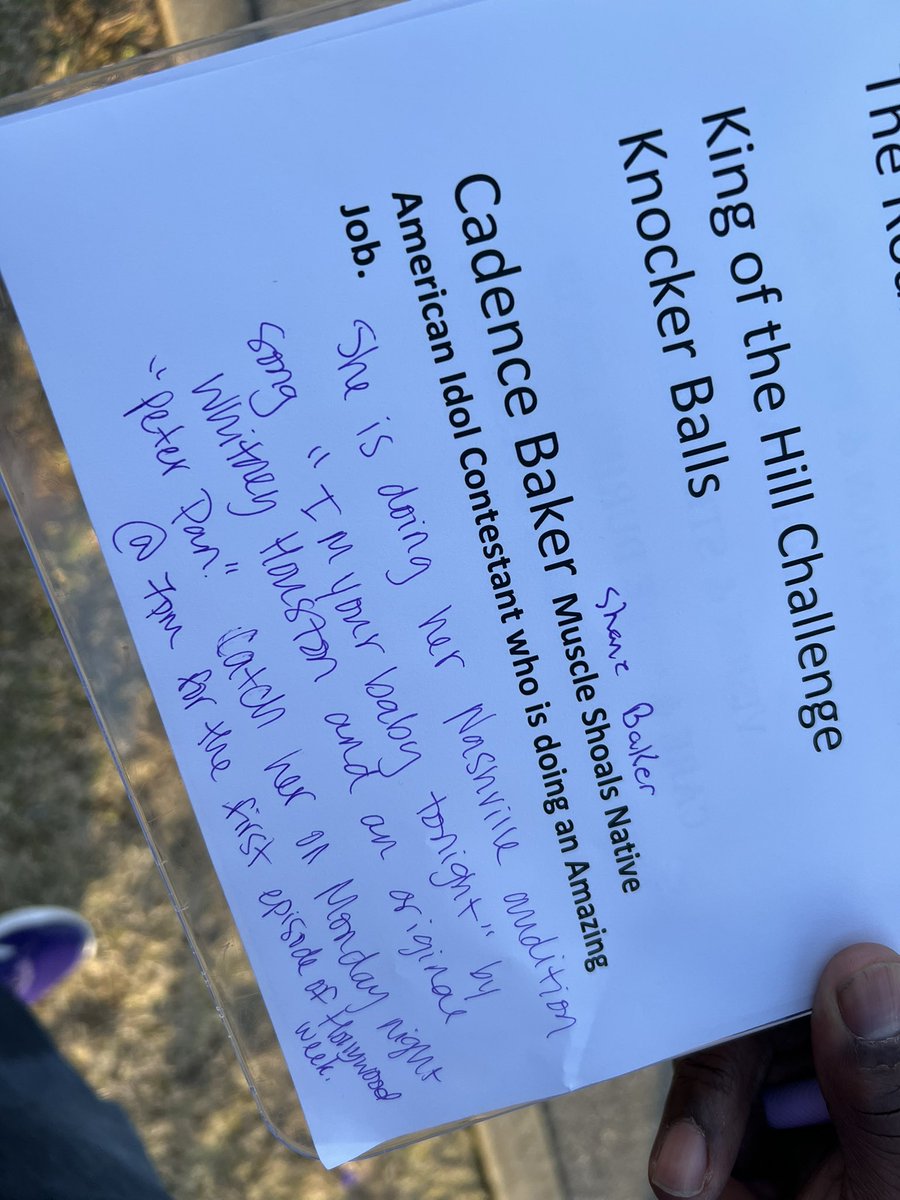 The
King of the Hill Challenge
Knocker Balls
Shane Baker
Cadence Baker Muscle Shoals Native
American Idol Contestant who is doing an Amazing
Job. She is doing her Nashville audition
song "I'm your baby tonight" by
Whitney Houston and an original
"Peter Pan." Catch her on Monday night
@ 7pm for the first episode of Hollywood
week.